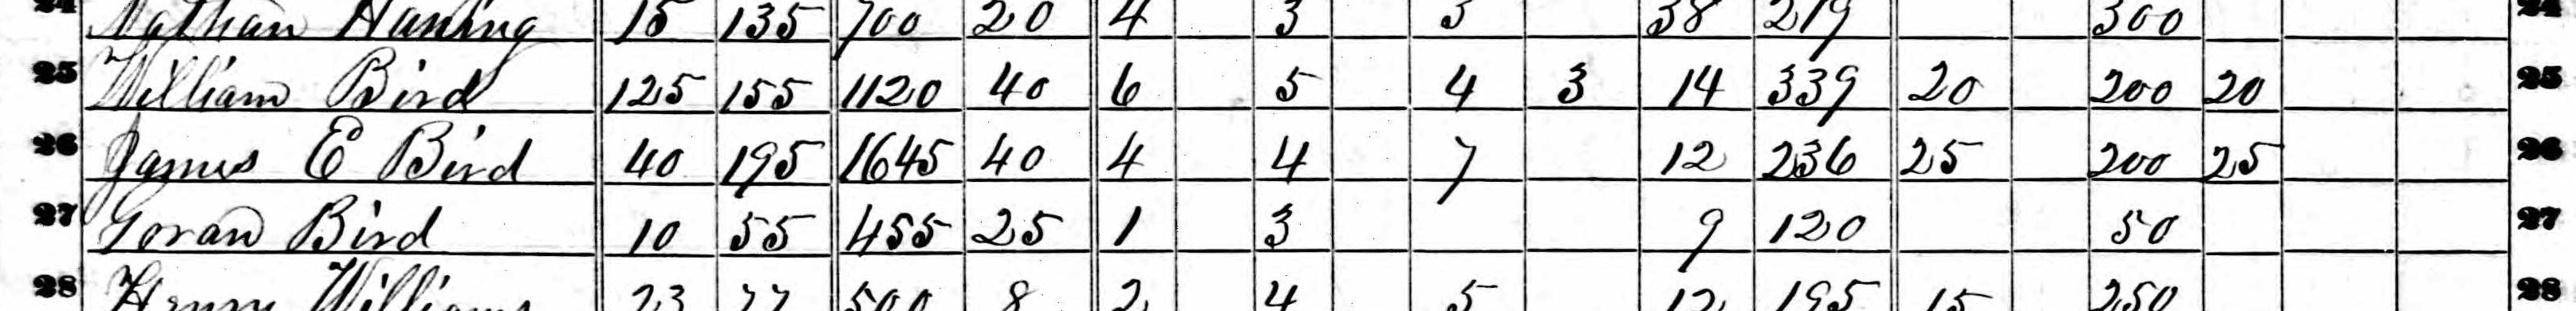 24 Nathan Haning 15 135 700 20 4 3 3 38 219 300 24
25 William Bird 125 155 1120 40 6 5 4 3 14 339 20 200 20 25
26 James E Bird 40 195 1645 40 4 4 7 12 236 25 200 25 26
27 Goran Bird 10 55 455 25 1 3 9 120 50 27
28 Henry Williams 23 77 500 8 2 4 5 12 195 15 250 28